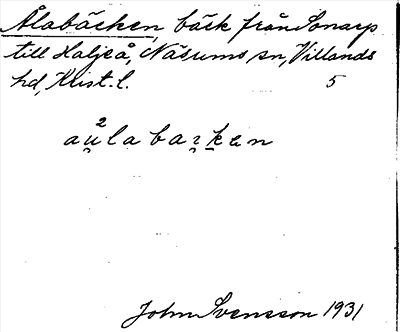 Ålabäcken, bäck från Sonarp
till Haljeå, Näsums sn, Villands
hd, Krist. l. 5
2
au̯labaʐken
John Svensson 1931